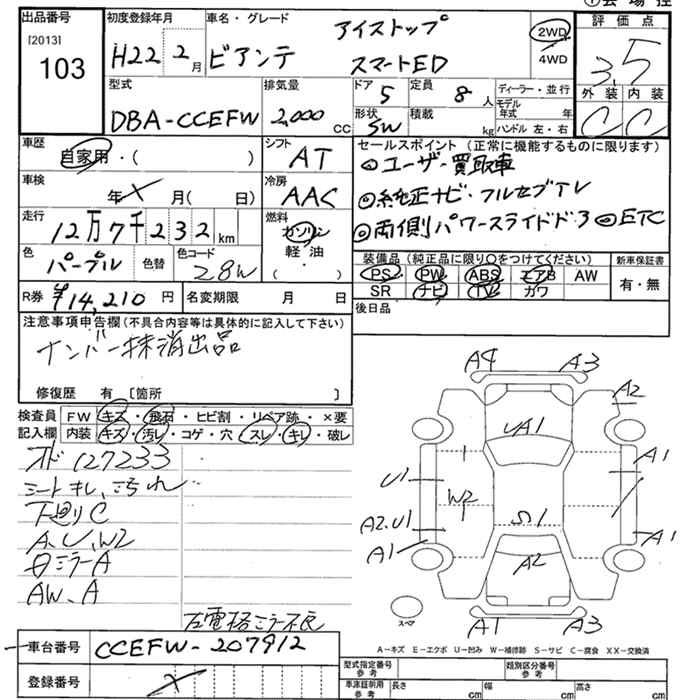 ①会場控
出品番号
[2013]
103
初度登録年月
H22 2月
車名・グレード
アイストップ
ビアンテ スマートED
2WD
4WD
評価点
3.5
外装 内装
C C
型式
DBA-CCEFW
排気量
2,000 CC
ドア 5
形状 SW
定員 8 人
積載 kg
ディーラー・並行
モデル年式 年
ハンドル 左・右
車歴
自家用・( )
シフト
AT
車検
年 X 月( 日)
冷房
AAC
走行
12万7千232km
燃料
ガソリン
軽油
( )
色
パープル
色替
色コード
28W
R券 ¥14,210 円
名変期限 月 日
セールスポイント (正常に機能するものに限ります)
◎ユーザー買取車
◎純正ナビ・フルセブTV
◎両側パワースライドドア ◎ETC
装備品(純正品に限り○をつけてください)
PS PW ABS エアB AW
SR ナビ TV カワ
新車保証書
有・無
後日品
注意事項申告欄(不具合内容等は具体的に記入して下さい)
ナンバー抹消出品
修復歴 有 〔箇所 〕
検査員記入欄
FW キズ・飛石・ヒビ割・リペア跡・×要
内装 キズ・汚レ・コゲ・穴・スレ・キレ・破レ
オド127233
シートキレ、汚れ
下廻りC
A、U、W2
日ミラーA
AW、A
左電格ミラー不良
A4 A3
A2
UA1
A1
U1
W2
A2、U1
S1
A1
A1
A2
A1 A3
スペア
A―キズ E―エクボ U―凹み W―補修跡 S―サビ C―腐食 XX―交換済
車台番号 CCEFW-207912
登録番号 X
型式指定番号 参考
類別区分番号 参考
車庫証明用 参考
長さ cm 幅 cm 高さ cm